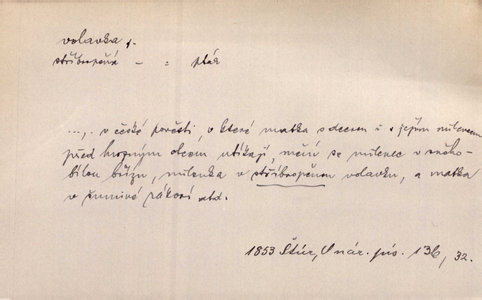 volavka f.
stříbropěná – „ pták
..,. v české pověsti, v které matka s dcerou i s jejím milencem
před hrozným otcem utíkají, mění se milenec v sněho-
bílou břízu, milenka v stříbropěnou volavku, a matka
v šumivé rákosí atd.
1853 Štúr, O nár. pís. 136, 32.